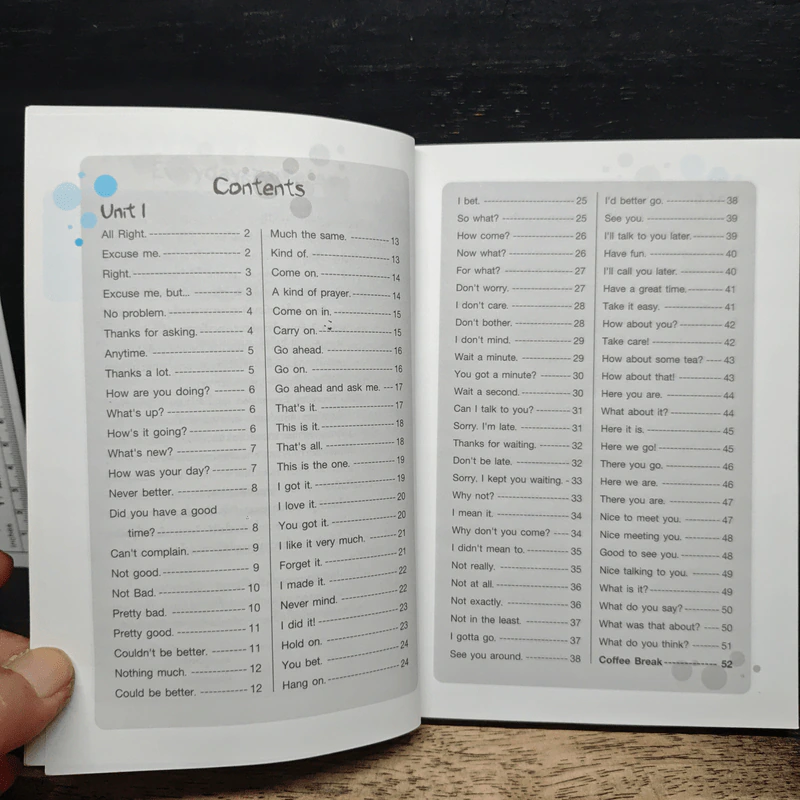 Contents
Unit 1
All Right. 2
Excuse me. 2
Right. 3
Excuse me, but... 3
No problem. 4
Thanks for asking. 4
Anytime. 5
Thanks a lot. 5
How are you doing? 6
What's up? 6
How's it going? 6
What's new? 7
How was your day? 7
Never better. 8
Did you have a good
time? 8
Can't complain. 9
Not good. 9
Not Bad. 10
Pretty bad. 10
Pretty good. 11
Couldn't be better. 11
Nothing much. 12
Could be better. 12
Much the same. 13
Kind of. 13
Come on. 14
A kind of prayer. 14
Come on in. 15
Carry on. 15
Go ahead. 16
Go on. 16
Go ahead and ask me. 17
That's it. 17
This is it. 18
That's all. 18
This is the one. 19
I got it. 19
I love it. 20
You got it. 20
I like it very much. 21
Forget it. 21
I made it. 22
Never mind. 22
I did it! 23
Hold on. 23
You bet. 24
Hang on. 24
I bet. 25
So what? 25
How come? 26
Now what? 26
For what? 27
Don't worry. 27
I don't care. 28
Don't bother. 28
I don't mind. 29
Wait a minute. 29
You got a minute? 30
Wait a second. 30
Can I talk to you? 31
Sorry. I'm late. 31
Thanks for waiting. 32
Don't be late. 32
Sorry, I kept you waiting. 33
Why not? 33
I mean it. 34
Why don't you come? 34
I didn't mean to. 35
Not really. 35
Not at all. 36
Not exactly. 36
Not in the least. 37
I gotta go. 37
See you around. 38
I'd better go. 38
See you. 39
I'll talk to you later. 39
Have fun. 40
I'll call you later. 40
Have a great time. 41
Take it easy. 41
How about you? 42
Take care! 42
How about some tea? 43
How about that! 43
Here you are. 44
What about it? 44
Here it is. 45
Here we go! 45
There you go. 46
Here we are. 46
There you are. 47
Nice to meet you. 47
Nice meeting you. 48
Good to see you. 48
Nice talking to you. 49
What is it? 49
What do you say? 50
What was that about? 50
What do you think? 51
Coffee Break 52